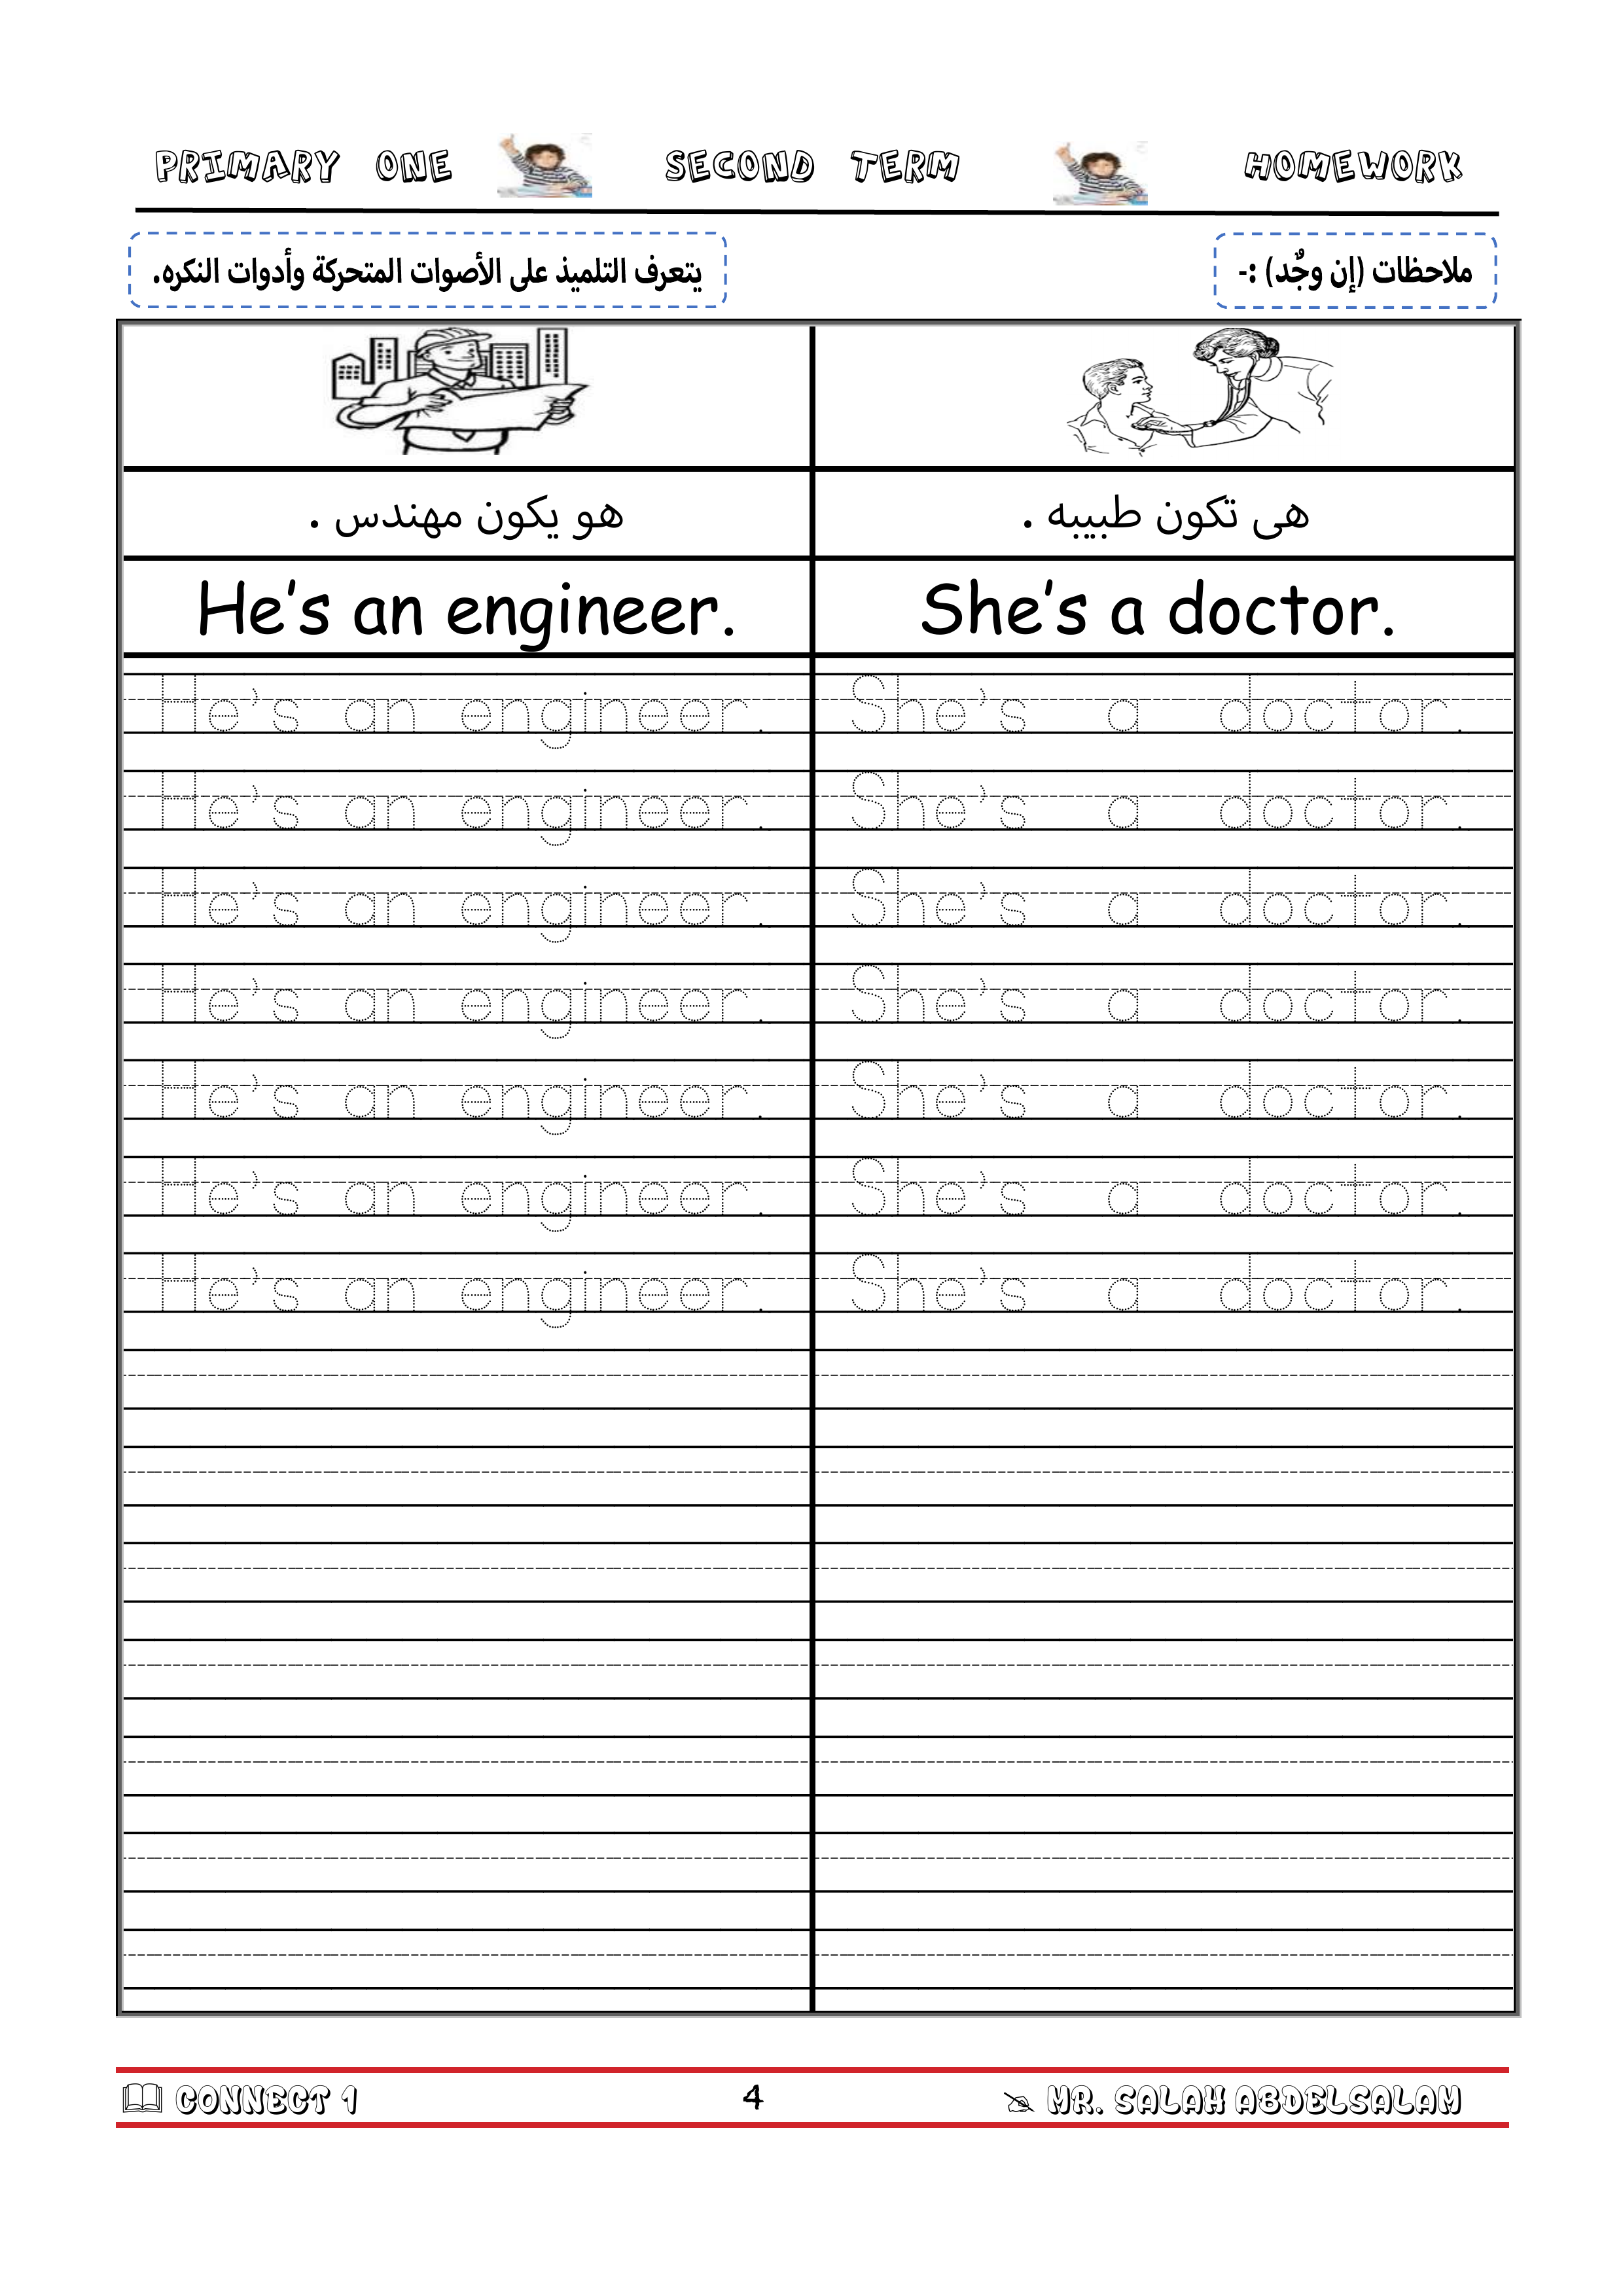 PRIMARY ONE SECOND TERM HOMEWORK
ملاحظات (إن وجٌد) :-
يتعرف التلميذ على الأصوات المتحركة وأدوات النكره.
هو يكون مهندس .
هى تكون طبيبه .
He's an engineer.
She's a doctor.
He's an engineer. She's a doctor.
He's an engineer. She's a doctor.
He's an engineer. She's a doctor.
He's an engineer. She's a doctor.
He's an engineer. She's a doctor.
He's an engineer. She's a doctor.
He's an engineer. She's a doctor.
CONNECT 1 4 MR. SALAH ABDELSALAM